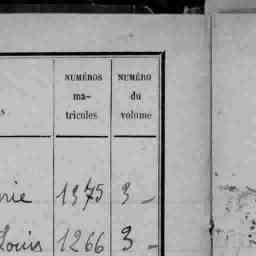 NUMÉROS NUMÉRO
ma- du
s tricules volume
rie 1375 3 -
Louis 1266 3 -